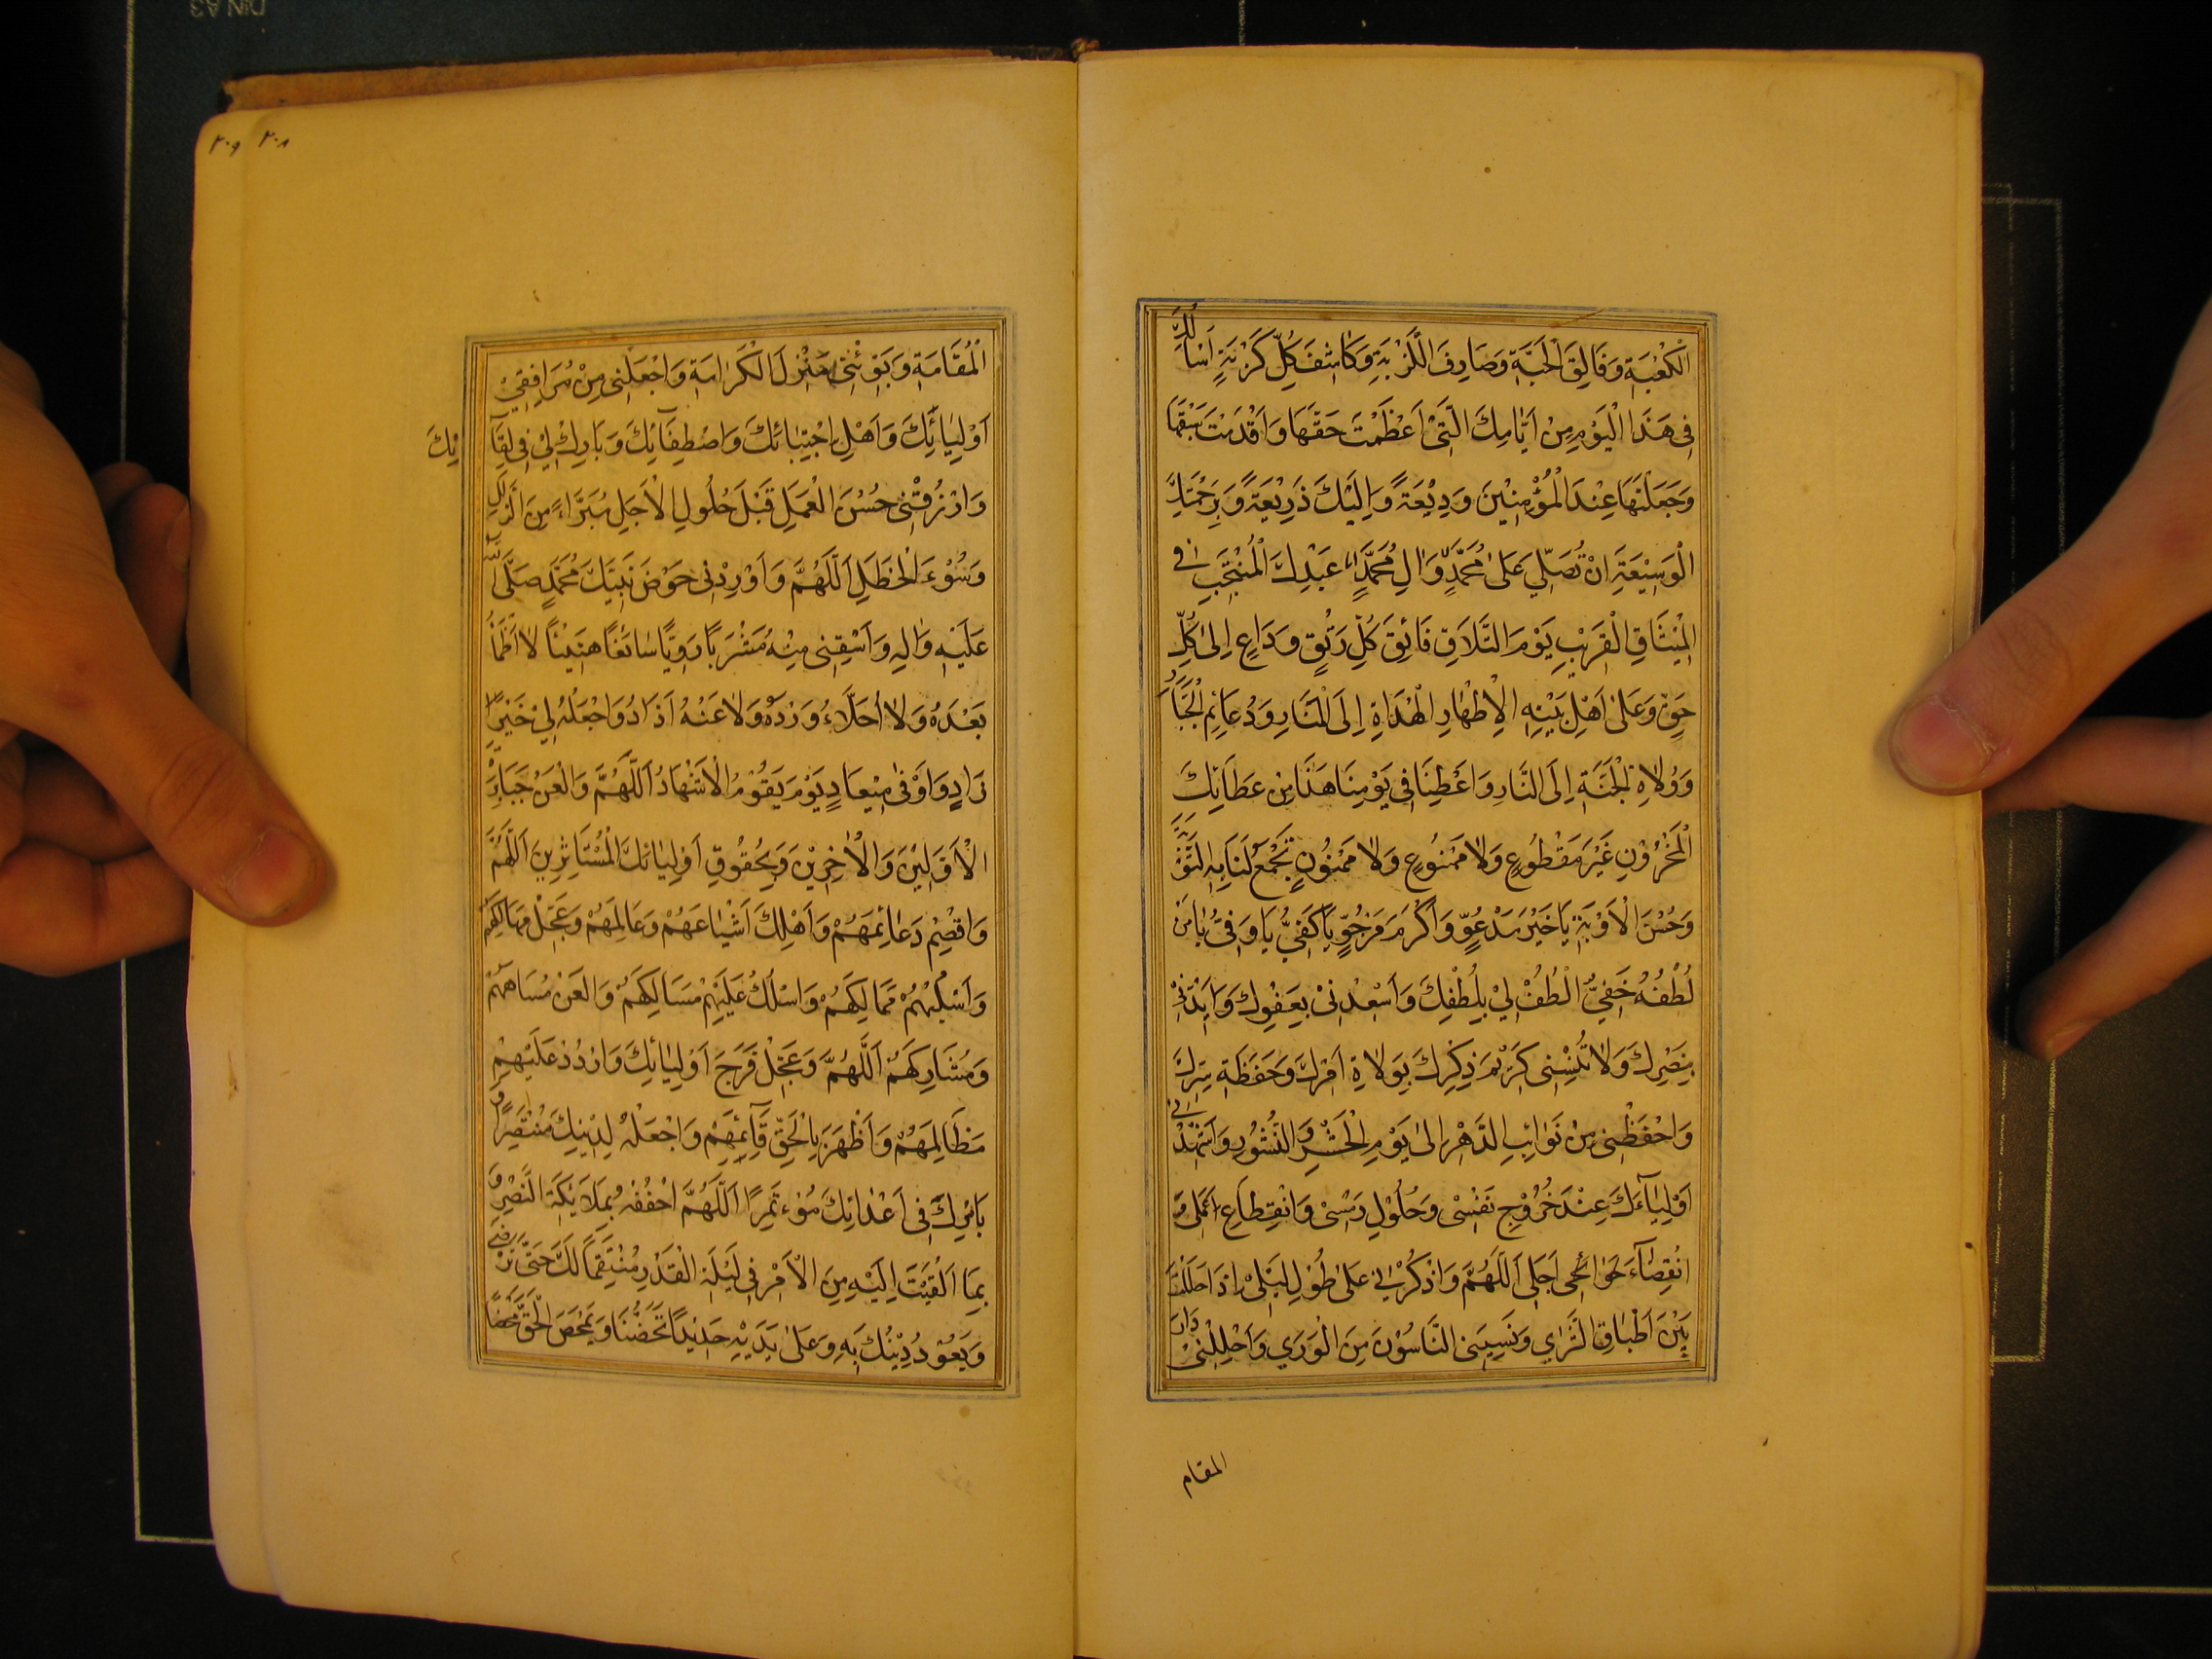 الْكَعْبَةِ وَفَالِقَ الْحَبَّةِ وَصَارِفَ اللَّزْبَةِ وَكَاشِفَ كُلِّ كَرْبَةٍ اَسْاَلُكَ
فِى هَذَا الْيَوْمِ مِنْ اَيَّامِكَ الَّتِىْ اَعْظَمْتَ حَقَّهَا وَاَقْدَمْتَ سَبْقَهَا
وَجَعَلْتَهَا عِنْدَ الْمُؤْمِنِيْنَ وَدِيْعَةً وَاِلَيْكَ ذَرِيْعَةً وَبِرَحْمَتِكَ
الْوَسِيْعَةِ اَنْ تُصَلِّيَ عَلىٰ مُحَمَّدٍ وَاٰلِ مُحَمَّدٍ عَبْدِكَ الْمُنْتَجَبِ فِى
الْمِيْثَاقِ الْقَرِيْبِ يَوْمَ التَّلَاقِ فَاتِقِ كُلِّ رَتْقٍ وَدَاعٍ اِلىٰ كُلِّ
حَقٍّ وَعَلىٰ اَهْلِ بَيْتِهِ الْاَطْهَارِ الْهُدَاةِ اِلَى الْمَنَارِ وَدَعَائِمِ الْجَبَّارِ
وَوُلَاةِ الْجَنَّةِ اِلَى النَّارِ وَاَعْطِنَا فِى يَوْمِنَا هَذَا مِنْ عَطَائِكَ
الْمَخْزُوْنِ غَيْرَ مَقْطُوعٍ وَلَا مَمْنُوعٍ وَلَا مَمْنُوْنٍ تَجْمَعُ لَنَا بِهِ التَّوْبَةَ
وَحُسْنَ الْاَوْبَةِ يَا خَيْرَ مَدْعُوٍّ وَاَكْرَمَ مَرْجُوٍّ يَا كَفِيُّ يَا وَفِىُّ يَا مَنْ
لُطْفُهُ خَفِيٌّ اُلْطُفْ لِيْ بِلُطْفِكَ وَاَسْعِدْنِىْ بِعَفْوِكَ وَاَيِّدْنِىْ
بِنَصْرِكَ وَلَا تُنْسِنِى كَرِيْمَ ذِكْرِكَ بِوَلَاةِ اَمْرِكَ وَحَفَظَةِ سِرِّكَ
وَاحْفَظْنِى مِنْ نَوَائِبِ الدَّهْرِ اِلىٰ يَوْمِ الْحَشْرِ وَالنُّشُورِ وَاَشْهِدْنِى
اَوْلِيَآءَكَ عِنْدَ خُرُوْجِ نَفْسِىْ وَحُلُوْلِ رَمْسِىْ وَانْقِطَاعِ عَمَلِى وَ
انْقِضَآءِ حَوَائِجِى اَجَلِى اَللّٰهُمَّ وَاذْكُرْنِى عَلىٰ طُوْلِ الْبِلىٰ اِذَا حَلَلْتُ
بَيْنَ اَطْبَاقِ الثَّرٰي وَنَسِيَنِى النَّاسُوْنَ مِنَ الْوَرٰي وَاَحْلِلْنِىْ دَارَ
المقام
٢٠٨
٢٠٩
الْمُقَامَةِ وَبَوِّئْنِى مَنْزِلَ الْكَرَامَةِ وَاجْعَلْنِى مِنْ مُرَافِقِيْ
اَوْلِيَائِكَ وَاَهْلِ اجْتِبَائِكَ وَاصْطِفَآئِكَ وَبَارِكْ لِيْ فِى لِقَآئِكَ
وَارْزُقْنِى حُسْنَ الْعَمَلِ قَبْلَ حُلُولِ الْاَجَلِ مُبَرَّاءً مِنَ الزَّلَلِ
وَسُوْءِ الْخَطَلِ اَللّٰهُمَّ وَاَوْرِدْنِى حَوْضَ نَبِيِّكَ مُحَمَّدٍ صَلَّى اللّٰهُ
عَلَيْهِ وَاٰلِهِ وَاَسْقِنِى مِنْهُ مَشْرَبًا رَوِيًّا سَائِغًا هَنِيْئًا لَا اَظْمَأُ
بَعْدَهُ وَلَا اُحَلَّاءُ وَرْدَهُ وَلَا عَنْهُ اُذَادُ وَاجْعَلْهُ لِيْ خَيْرَ
زَادٍ وَاَوْفىٰ مِيْعَادٍ يَوْمَ يَقُوْمُ الْاَشْهَادُ اَللّٰهُمَّ وَالْعَنْ جَبَابِرَةَ
الْاَوَّلِيْنَ وَالْاٰخِرِيْنَ وَبِحُقُوْقِ اَوْلِيَائِكَ الْمُسْتَاثِرِيْنَ اَللّٰهُمَّ
وَاقْصِمْ دَعَائِمَهُمْ وَاَهْلِكْ اَشْيَاعَهُمْ وَعَالِمَهُمْ وَعَجِّلْ مَهَالِكَهُمْ
وَاسْلُبْهُمْ مَمَالِكَهُمْ وَاسْلُكْ عَلَيْهِمْ مَسَالِكَهُمْ وَالْعَنْ مُسَاهِمَهُمْ
وَمُشَارِكَهُمْ اَللّٰهُمَّ وَعَجِّلْ فَرَجَ اَوْلِيَائِكَ وَارْدُدْ عَلَيْهِمْ
مَظَالِمَهُمْ وَاَظْهِرْ بِالْحَقِّ قَآئِمَهُمْ وَاجْعَلْهُ لِدِيْنِكَ مُنْتَصِرًا وَ
بِاَمْرِكَ فِى اَعْدَائِكَ مُوءْتَمِرًا اَللّٰهُمَّ احْفُفْهُ بِمَلَائِكَةِ النَّصْرِ وَ
بِمَا اَلْقَيْتَ اِلَيْهِ مِنَ الْاَمْرِ فِى لَيْلَةِ الْقَدْرِ مُنْتَقِمًا لَكَ حَتّٰى تَرْضىٰ
وَيَعُوْدَ دِيْنُكَ بِهِ وَعَلىٰ يَدَيْهِ جَدِيْدًا غَضًّا وَيُمَحِّصَ الْحَقَّ مَحْضًا